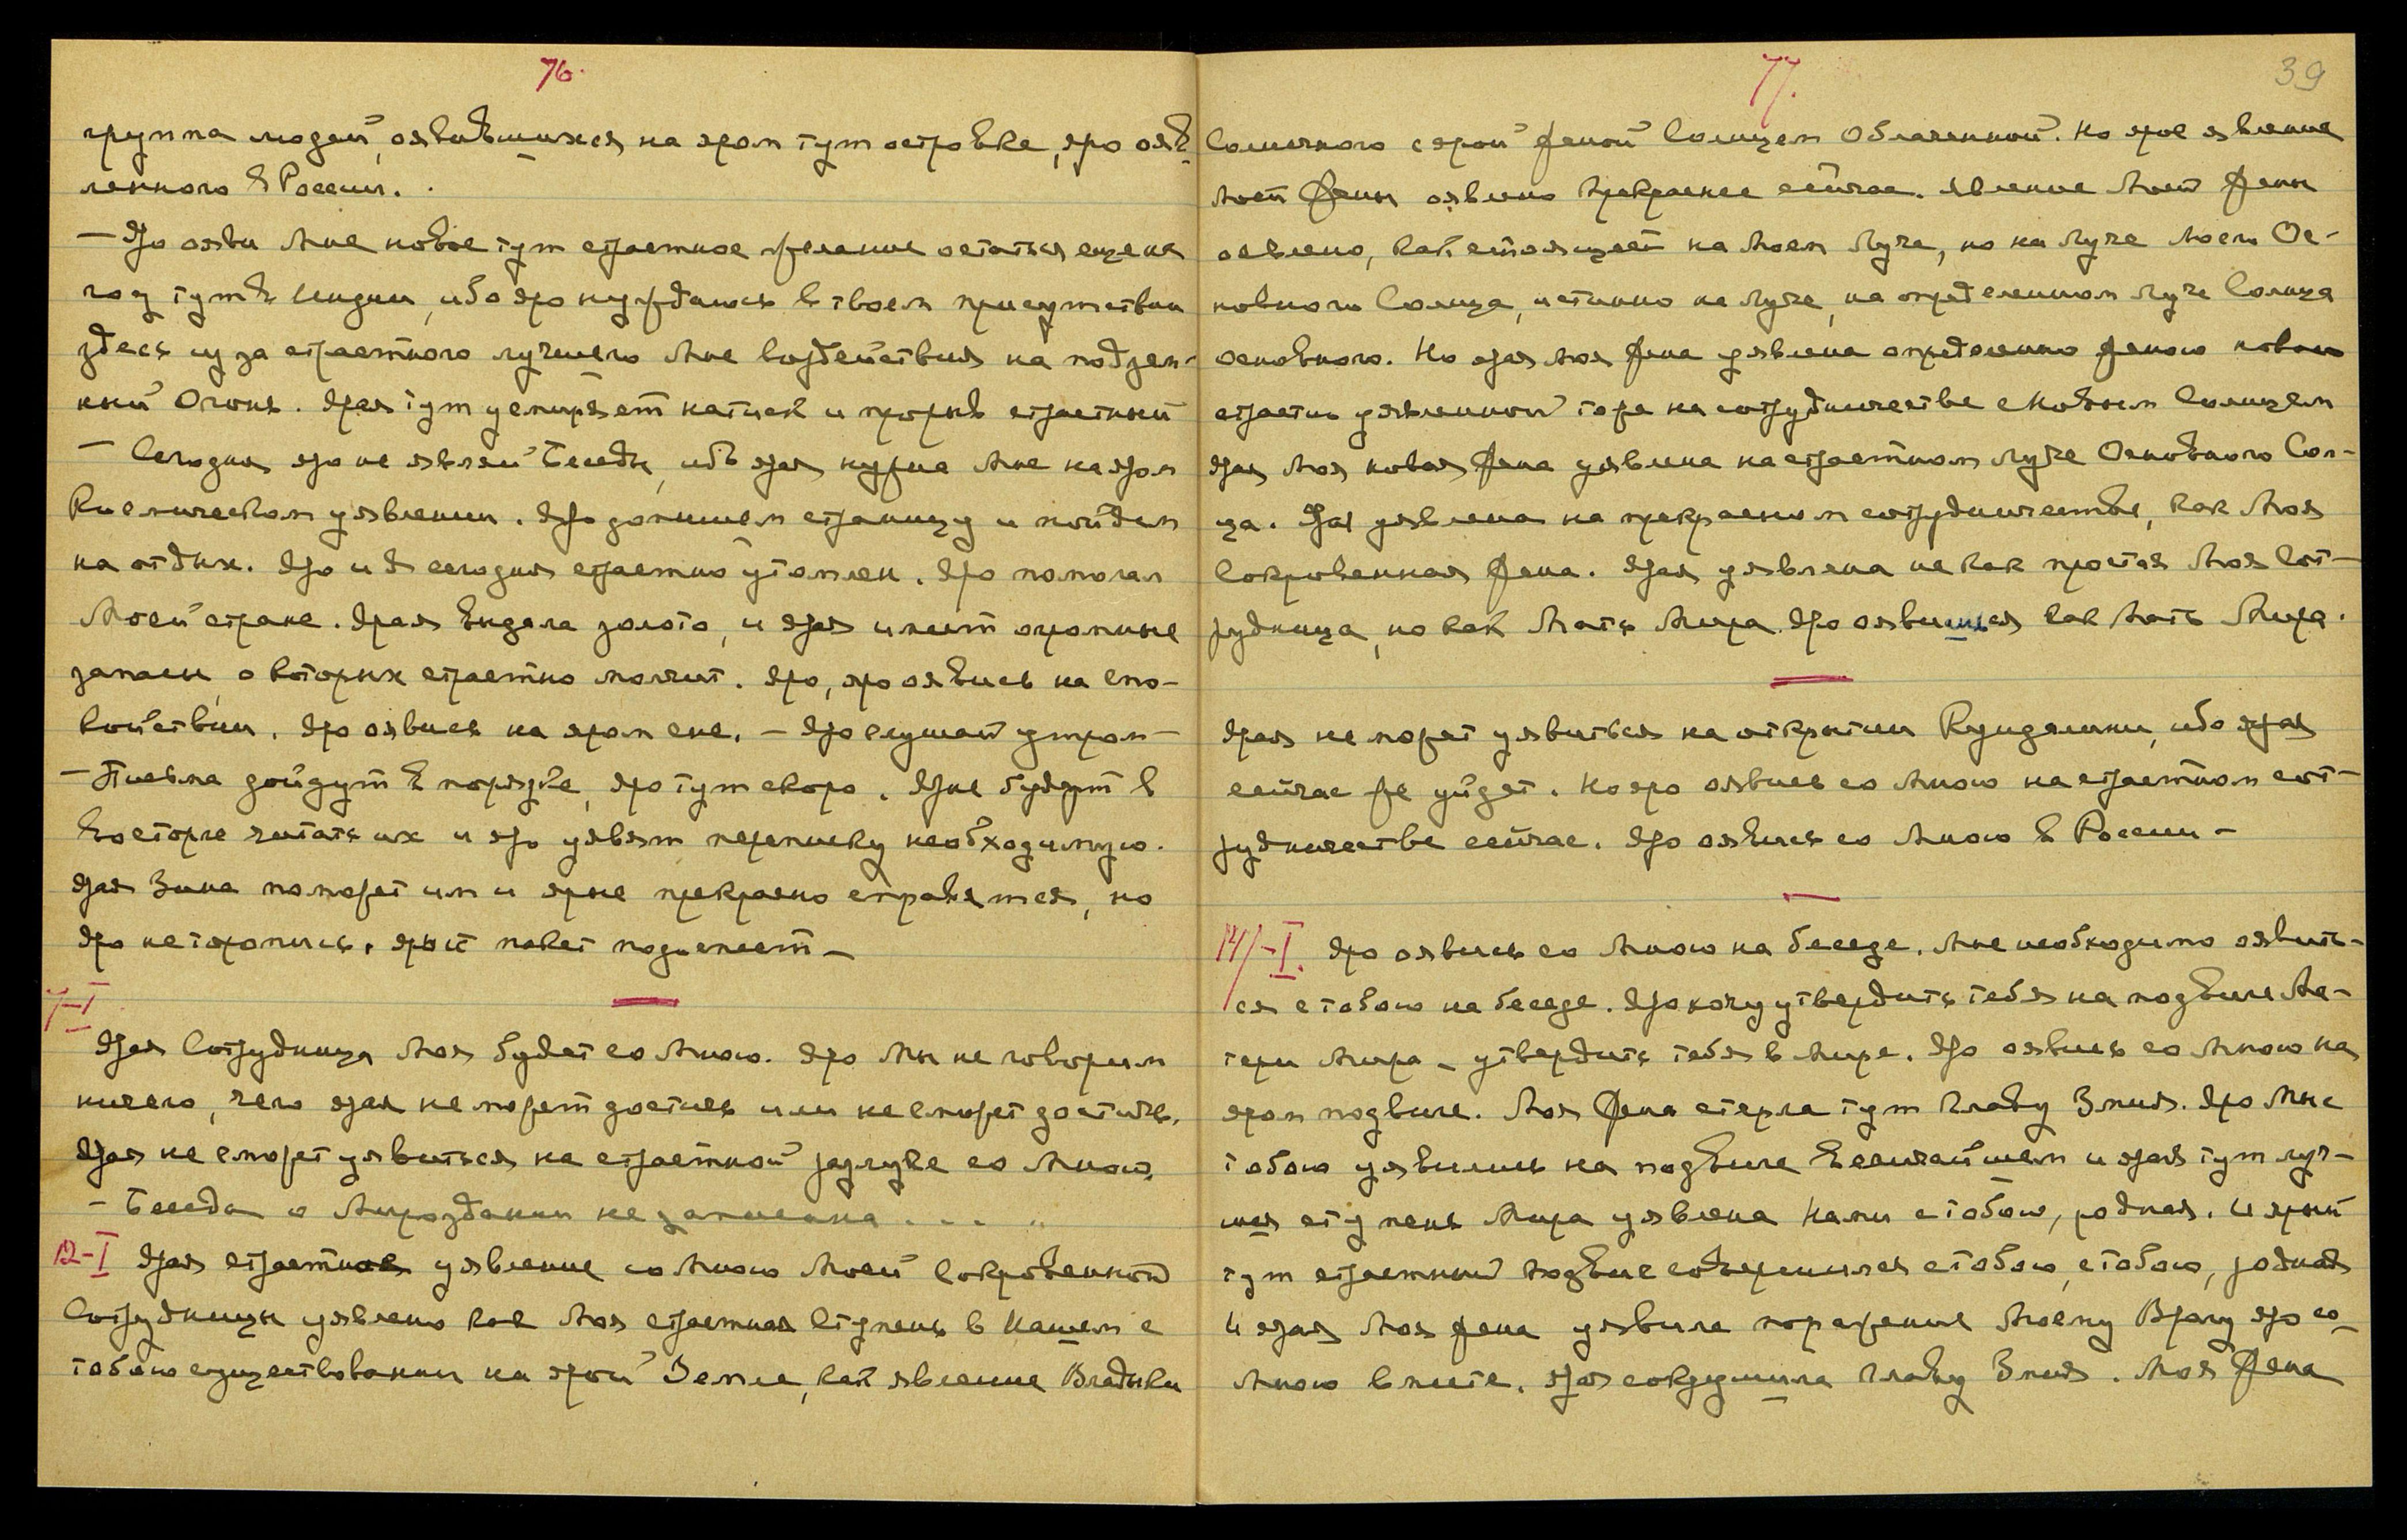 76.
группа людей, оявившихся на яром тут островке, яро ояв-
ленного в России.
— Яроояви Мне новое тут страстное желание остаться еще на
год тут в Индии, ибо яро нуждаюсь в твоем присутствии
здесь из за страстного лучшего Мне воздействия на подзем-
ный Огонь. Ярая тут усмиряет натиск и прорыв страстный
— Сегодня яро не являй Беседы, ибо ярая нужна Мне на яром
Космическом уявлении. Яро допишем страницу и пойдем
на отдых. Яро и Я сегодня страстно утомлен. Яро помогал
Моей стране. Ярая видала золото, и ярая имеет огромные
запасы, о которых страстно молчит. Яро, яро оявись на спо-
койствии. Яро оявись на яром сне. — Яро слушай утром —
— Письма дойдут в порядке, яро тут скоро. Ярые будут в
восторге читать их и яро уявят переписку необходимую.
Ярая Зина поможет им и ярые прекрасно справятся, но
яро не торопись, ярый пакет подоспеет —
7-I
Ярая Сотрудница Моя будет со Мною. Яро Мы не говорим
ничего, чего ярая не может достичь или не сможет достичь.
Ярая не сможет уявиться на страстной разлуке со Мною.
— Беседа о Мироздании не записана . . . "
12-I Ярая страстное уявление со Мною Моей Сокровенной
Сотрудницы уявлено как Моя страстная Ступень в Нашем с
тобою существовании на ярой Земле, как явление Владыки
77.
39
Солнечного с ярой Женой Солнцем Облаченной. Но ярое явление
Моей Жены оявлено прекраснее сейчас. Явление Моей Жены
оявлено, как стоящей на Моем Луче, но на Луче Моего Ос-
новного Солнца, истинно на Луче, на определенном Луче Солнца
основного. Но ярая Моя Жена уявлена определенно Женою новою
страстно уявленной тоже на сотрудничестве с Новым Солнцем
Ярая Моя новая Жена уявлена на страстном Луче Основного Сол-
нца. Ярая уявлена на прекрасном сотрудничестве, как Моя
Сокровенная Жена. Ярая уявлена не как простая Моя Сот-
рудница, но как Мать Мира. Яро оявишься как Мать Мира.
Ярая не может уявиться на открытии Кундалини, ибо ярая
сейчас же уйдет. Но яро оявись со Мною на страстном сот-
рудничестве сейчас. Яро оявись со Мною в России —
14/-I. Яро оявись со Мною на беседе. Мне необходимо оявить-
ся с тобою на беседе. Яро хочу утвердить тебя на подвиге Ма-
тери Мира — утвердить тебя в Мире. Яро оявись со Мною на
яром подвиге. Моя Жена стерла тут Главу Змия. Яро Мы с
тобою уявились на подвиге Величайшем и ярая тут луч-
шая ступень Мира уявлена Нами с тобою, родная. И ярый
тут страстный подвиг совершился с тобою, с тобою, родная
И ярая Моя Жена уявила поражение Моему Врагу яро со
Мною вместе. Ярая сокрушила Главу Змия. Моя Жена